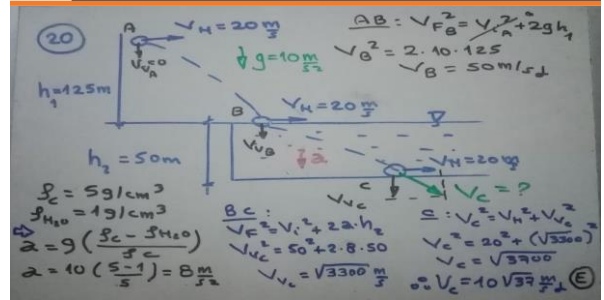 20
A
V_H = 20 m/s
V_{V_A} = 0
g = 10 m/s²
h₁ = 125m
AB : V_{F_B}² = V_{i_A}² + 2gh₁
V_B² = 2 · 10 · 125
V_B = 50 m/s
B
V_H = 20 m/s
V_{V_B}
a
h₂ = 50m
C
V_H = 20 m/s
V_{V_C}
V_C = ?
ρ_C = 5g/cm³
ρ_{H₂O} = 1g/cm³
⇒ a = g (ρ_C - ρ_{H₂O} / ρ_C)
a = 10 (5-1 / 5) = 8 m/s²
BC :
V_F² = V_i² + 2a·h₂
V_{V_C}² = 50² + 2·8·50
V_{V_C} = √3300 m/s
C : V_C² = V_H² + V_{V_C}²
V_C² = 20² + (√3300)²
V_C = √3700
∴ V_C = 10√37 m/s
E